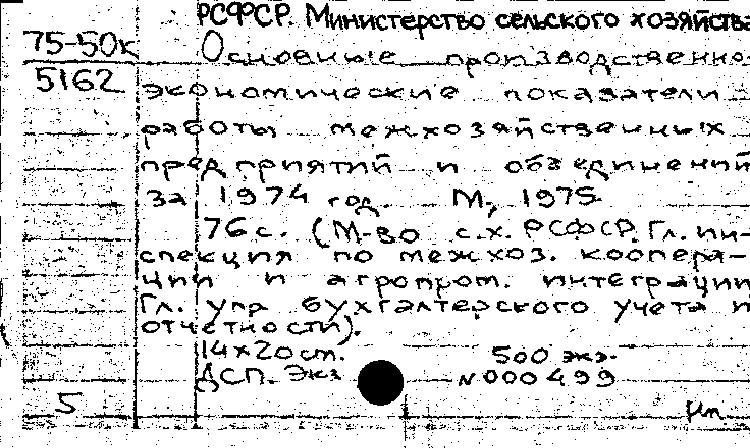 РСФСР. Министерство сельского хозяйства
75-50к Основные производственно-
5162 экономические показатели
работы межхозяйственных
предприятий и объединений
за 1974 год. М., 1975.
76с. (М-во с.х. РСФСР. Гл. ин-
спекция по межхоз. коопера-
ции и агропром. интеграции
Гл. упр бухгалтерского учета и
отчетности).
14х20 cm. 500 экз.
ДСП. Экз №000499
5